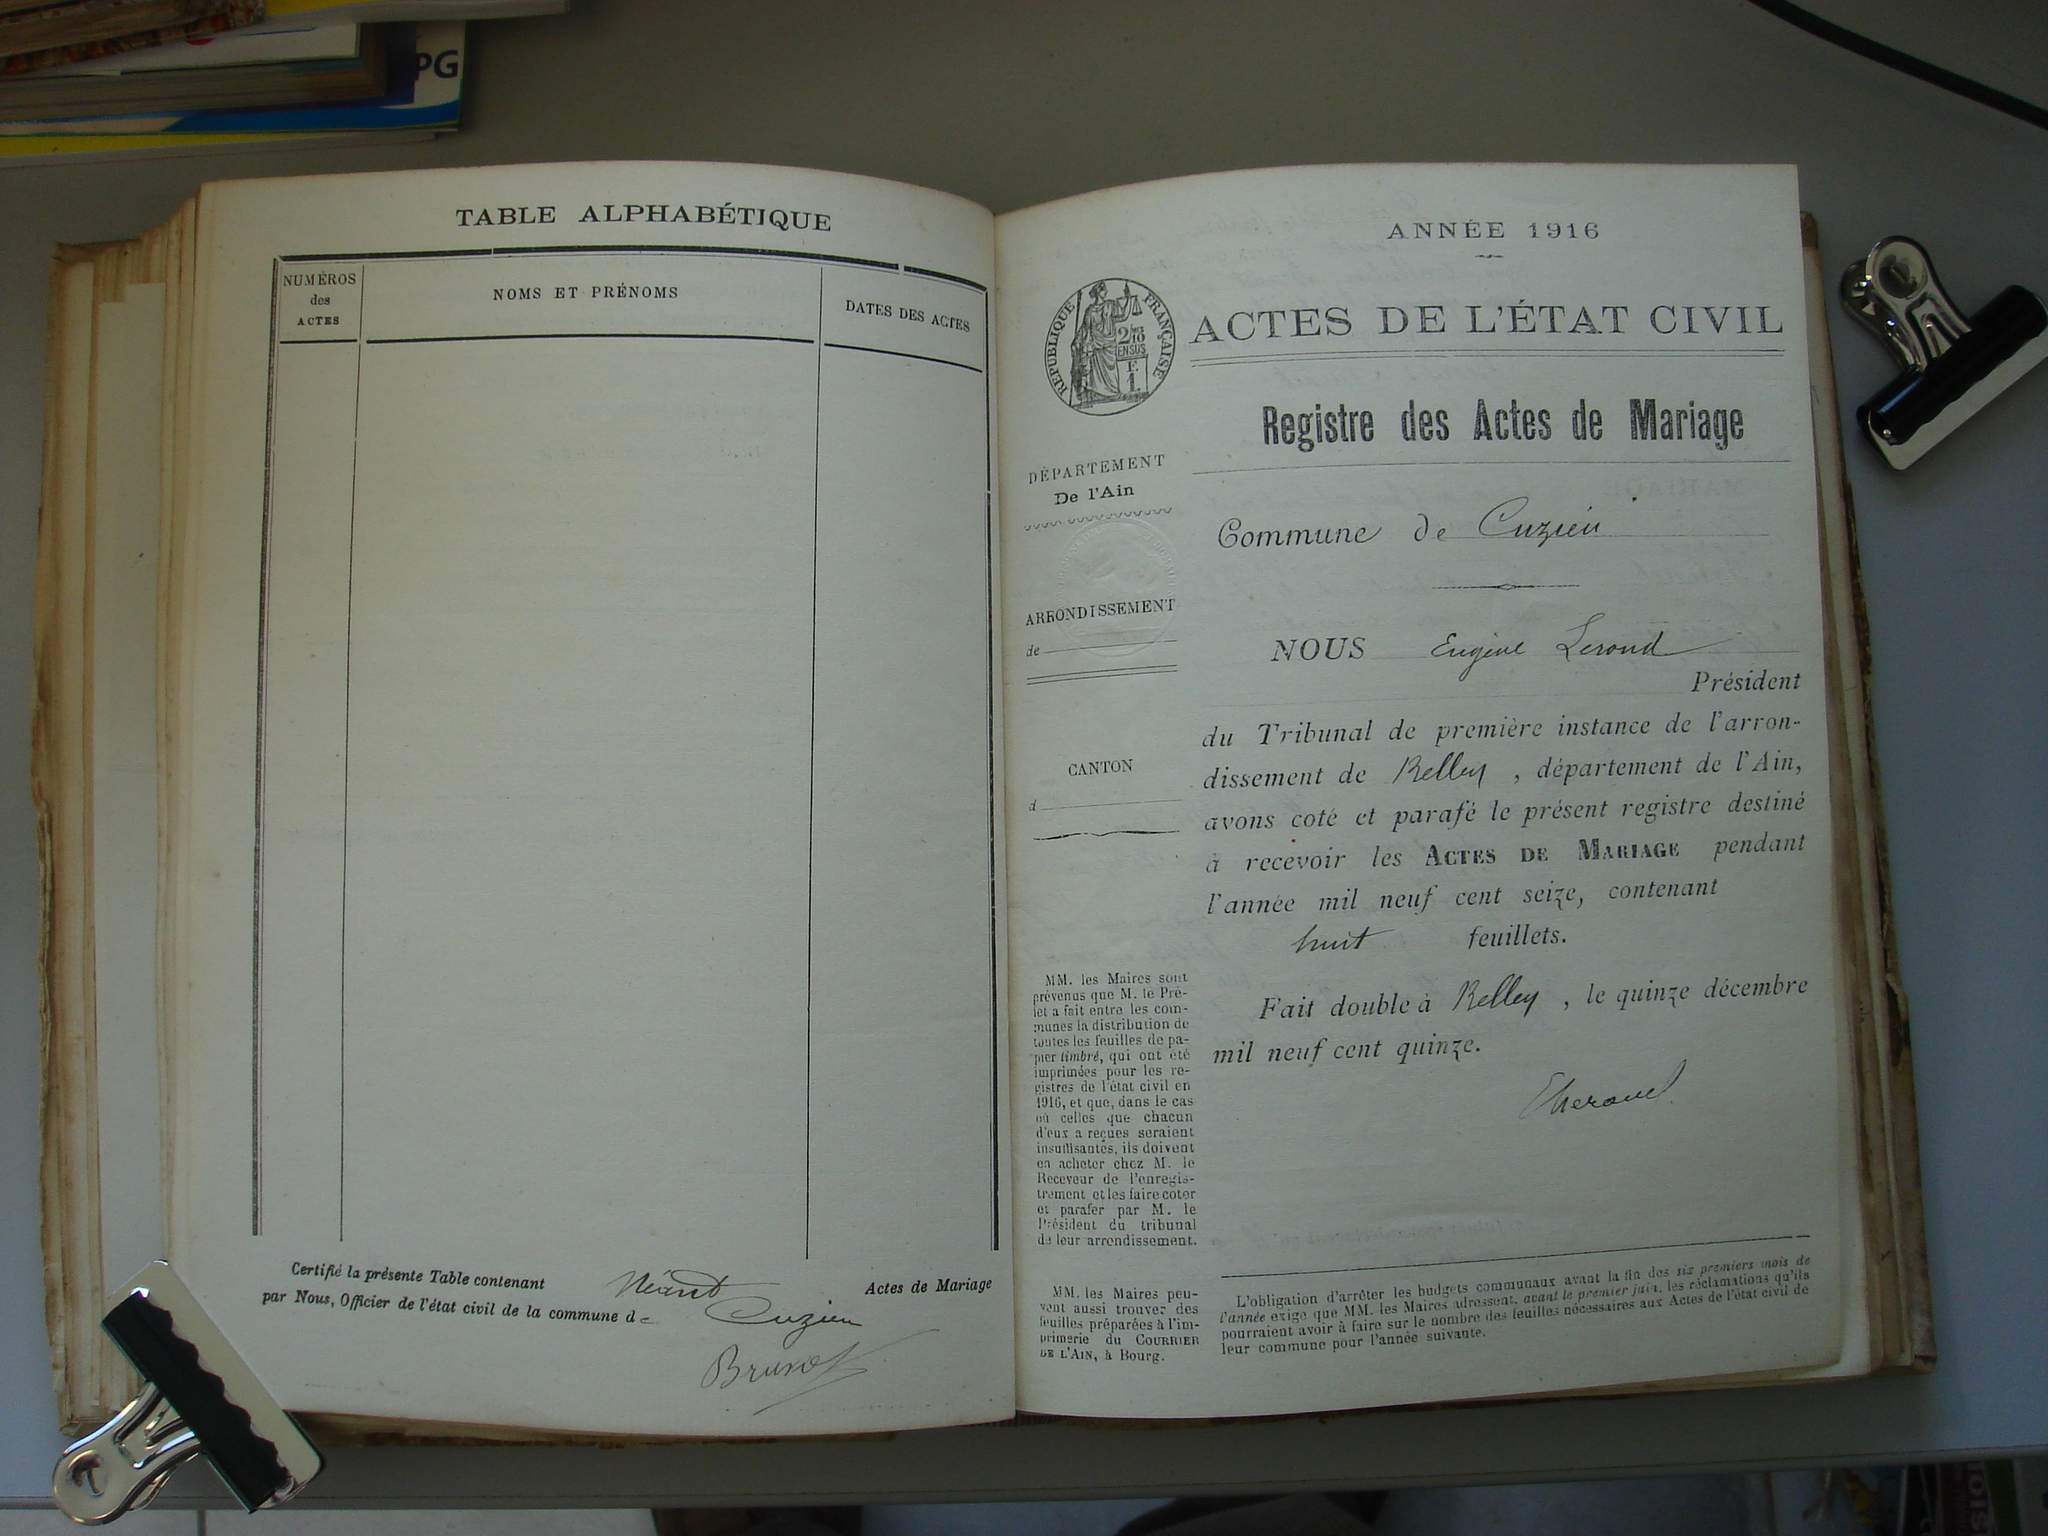 PG
TABLE ALPHABÉTIQUE
NUMÉROS
des
ACTES
NOMS ET PRÉNOMS
DATES DES ACTES
Certifié la présente Table contenant Néant Actes de Mariage
par Nous, Officier de l'état civil de la commune de Cuzieu
ANNÉE 1916
RÉPUBLIQUE FRANÇAISE
2/10
EN SUS
F.
1
ACTES DE L'ÉTAT CIVIL
Registre des Actes de Mariage
DÉPARTEMENT
De l'Ain
ARRONDISSEMENT
de
CANTON
d
Commune de Cuzieu
NOUS Eugène Lerond
Président
du Tribunal de première instance de l'arron-
dissement de Belley, département de l'Ain,
avons coté et parafé le présent registre destiné
à recevoir les ACTES DE MARIAGE pendant
l'année mil neuf cent seize, contenant
huit feuillets.
Fait double à Belley, le quinze décembre
mil neuf cent quinze.
MM. les Maires sont
prévenus que M. le Pré-
fet a fait entre les com-
munes la distribution de
toutes les feuilles de pa-
pier timbré, qui ont été
imprimées pour les re-
gistres de l'état civil en
1916, et que, dans le cas
où celles que chacun
d'eux a reçues seraient
insuffisantes, ils doivent
en acheter chez M. le
Receveur de l'enregis-
trement et les faire coter
et parafer par M. le
Président du tribunal
de leur arrondissement.
MM. les Maires peu-
vent aussi trouver des
feuilles préparées à l'im-
primerie du COURRIER
DE L'AIN, à Bourg.
L'obligation d'arrêter les budgets communaux avant la fin des six premiers mois de
l'année exige que MM. les Maires adressent, avant le premier juin, les réclamations qu'ils
pourraient avoir à faire sur le nombre des feuilles nécessaires aux Actes de l'état civil de
leur commune pour l'année suivante.